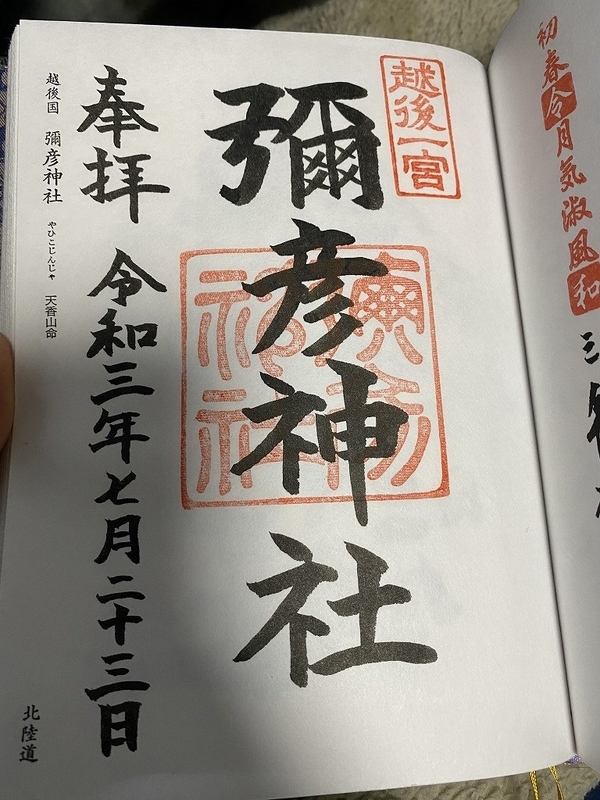 初春令月気淑風和
越後一宮
彌彦神社
彌彦神社
奉拝 令和三年七月二十三日
越後国 彌彦神社 やひこじんじゃ 天香山命
北陸道